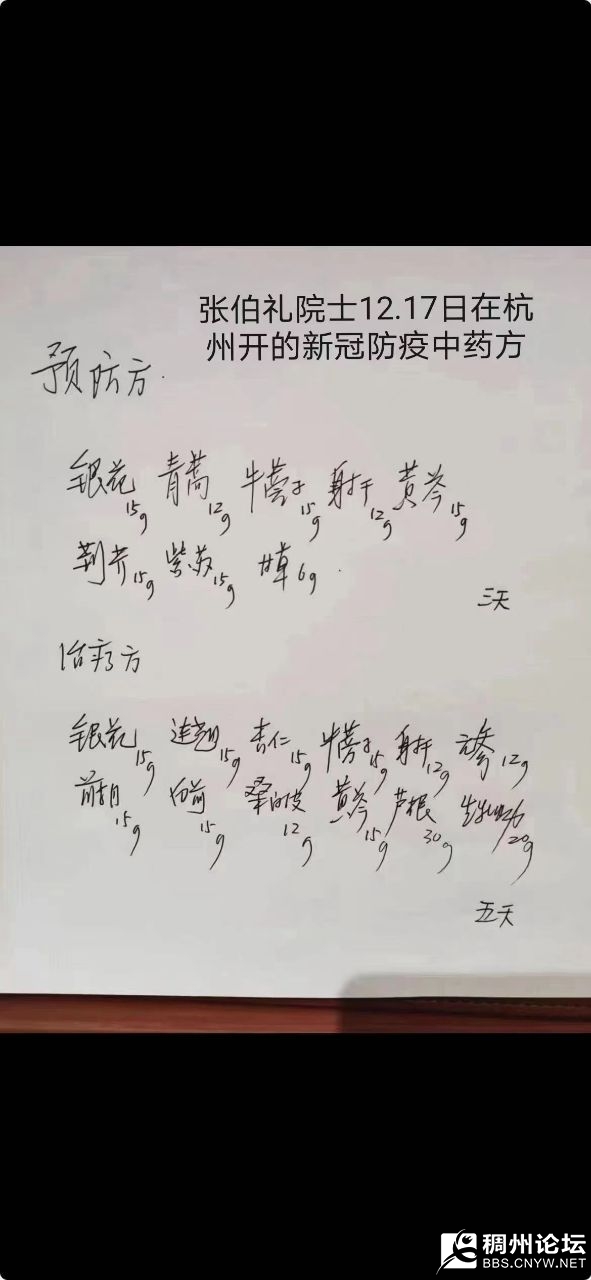 张伯礼院士12.17日在杭
州开的新冠防疫中药方
预防方.
银花15g 青蒿12g 牛蒡子15g 射干12g 黄芩15g
荆芥15g 紫苏15g 甘草6g.
三天
治疗方
银花15g 连翘15g 杏仁15g 牛蒡子15g 射干12g 玄参12g
前胡15g 白前15g 桑白皮12g 黄芩15g 芦根30g 20g
五天
稠州论坛
BBS.CNYW.NET